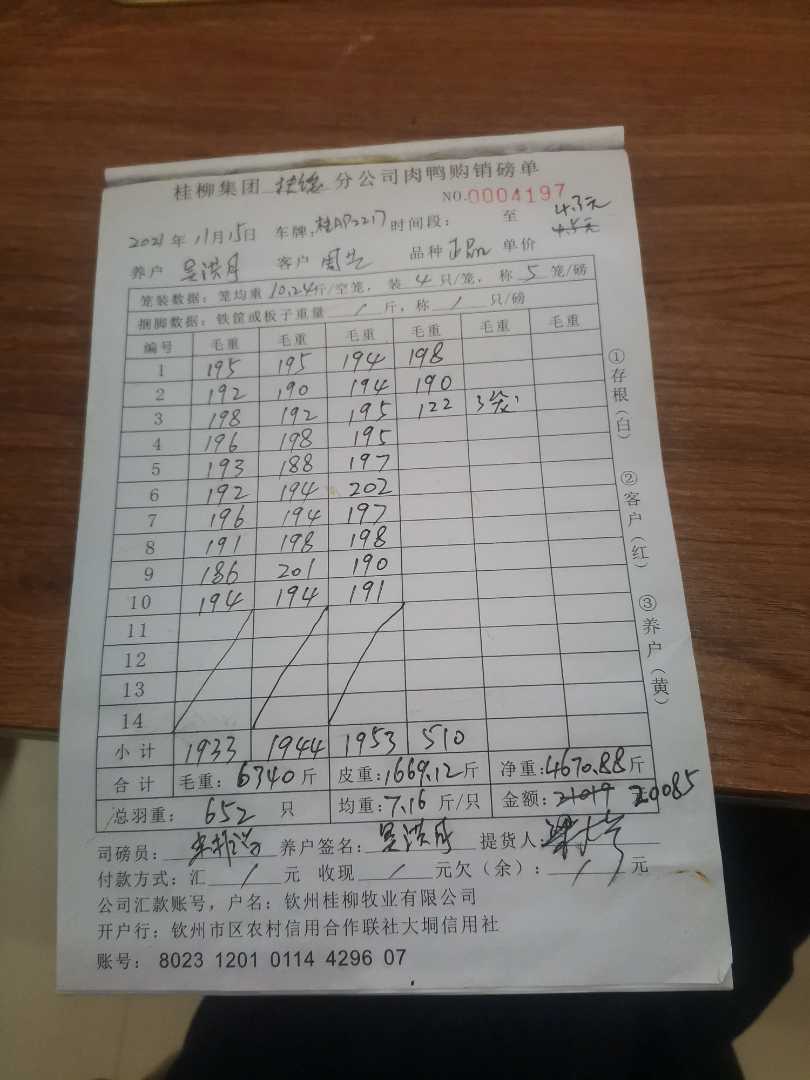 桂柳集团 分公司肉鸭购销磅单
NO.0004197
2021年11月15日 车牌:桂AP2217 时间段: 至 4.3元
养户 吴洪月 客户 周生 品种 单价 4.5元
笼装数据:笼均重10.24斤/空笼,装4只/笼,称5笼/磅
捆脚数据:铁筐或板子重量/斤,称/只/磅
编号 毛重 毛重 毛重 毛重 毛重 毛重
1 195 195 194 198
2 192 190 194 190
3 198 192 195 122 3笼
4 196 198 195
5 193 188 197
6 192 194 202
7 196 194 197
8 191 198 198
9 186 201 190
10 194 194 191
11
12
13
14
小计 1933 1944 1953 510
合计 毛重:6340斤 皮重:1669.12斤 净重:4670.88斤
总羽重:652只 均重:7.16斤/只 金额:21019 20085
司磅员: 养户签名:吴洪月 提货人:
付款方式:汇/元 收现/元欠(余):/元
公司汇款账号,户名:钦州桂柳牧业有限公司
开户行:钦州市区农村信用合作联社大垌信用社
账号:8023 1201 0114 4296 07
①存根(白)
②客户(红)
③养户(黄)